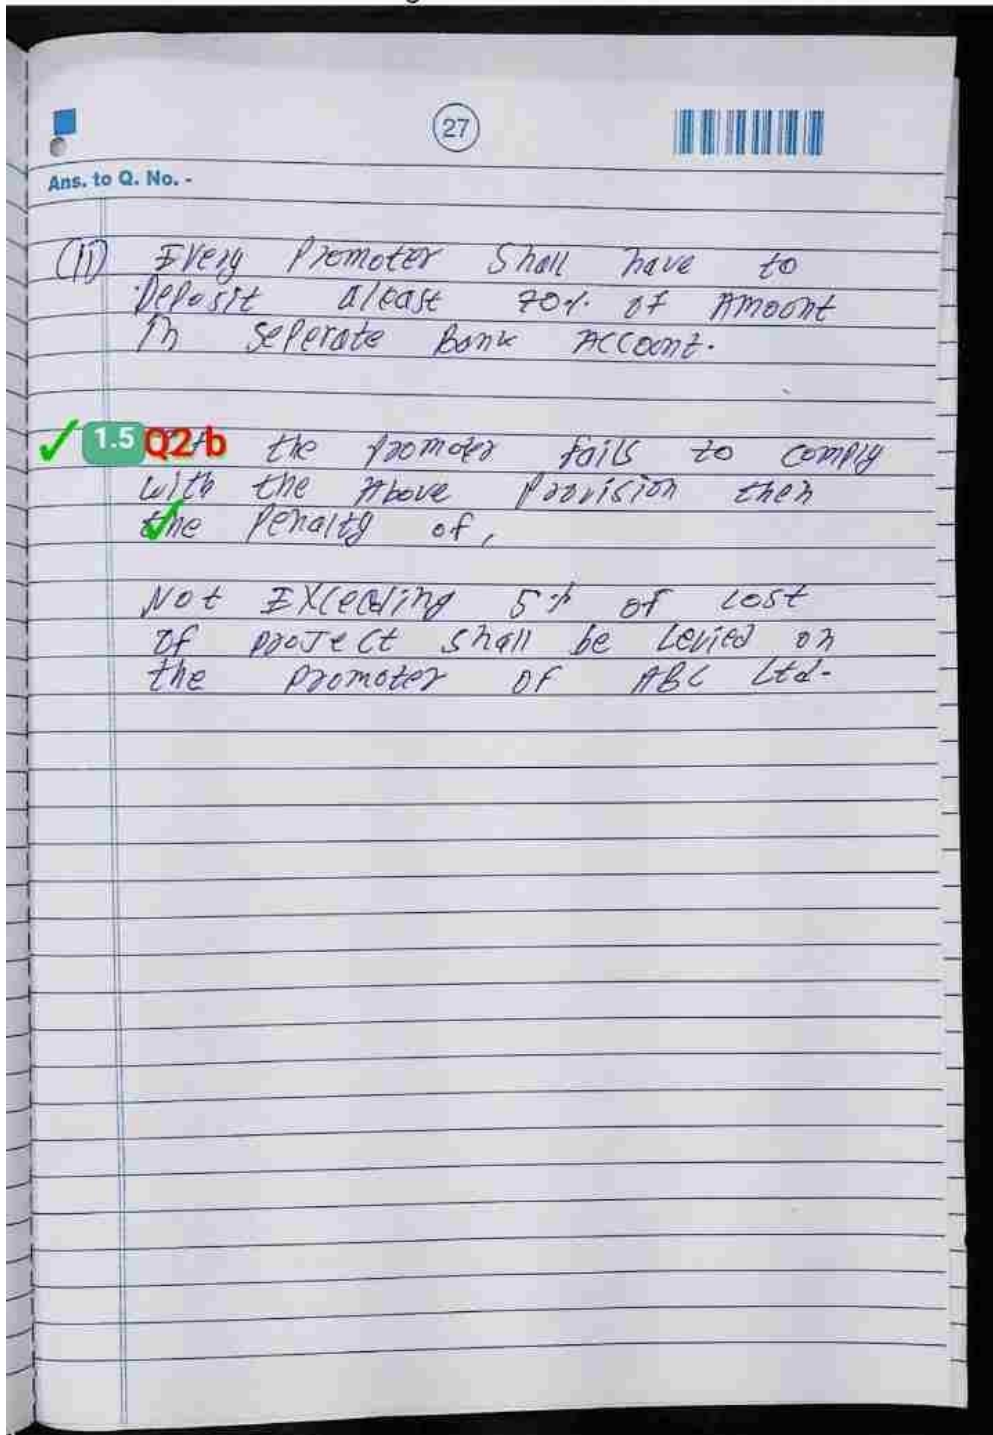 27
Ans. to Q. No. -
(ii) Every Promoter Shall have to
Deposit atleast 70% of Amount
in seperate Bank Account.
1.5 Q2-b the promoter fails to comply
with the Above Provision then
the Penalty of,
Not Exceeding 5% of cost
of project shall be Levied on
the promoter of ABC Ltd.